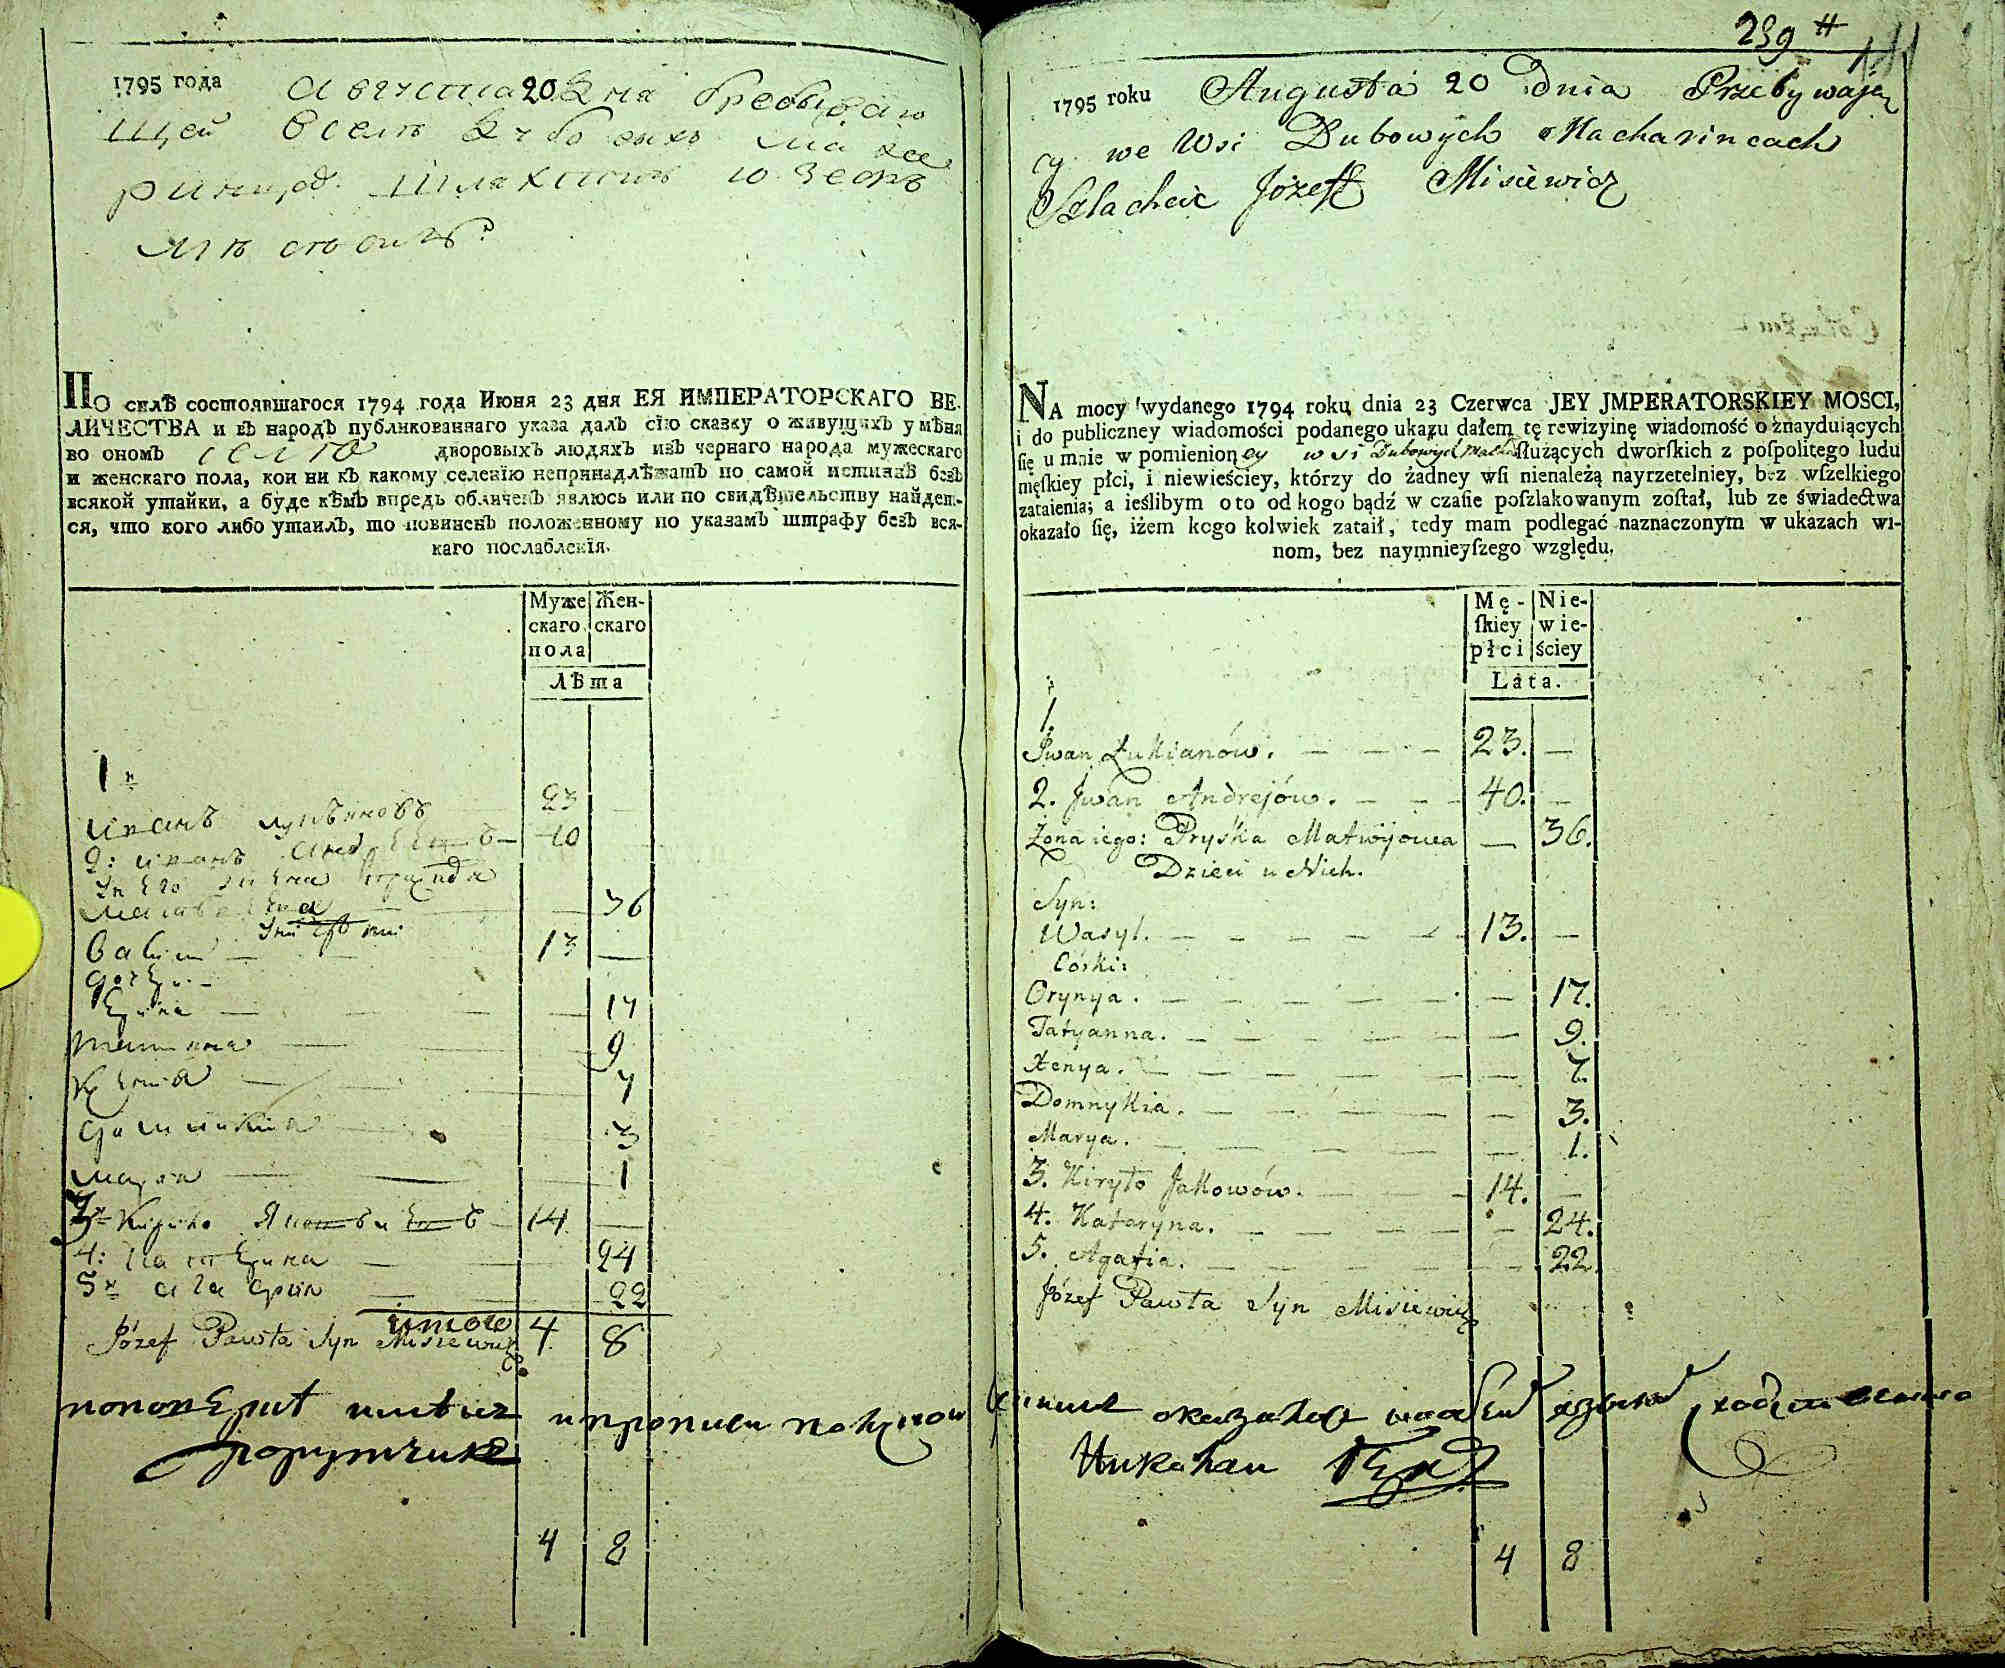 1795 года Августа 20 дня пребываю
щей всели Дубовыхъ Маха
ринцах Шляхтичъ Юзефъ
Мисевичъ
По силѣ состоявшагося 1794 года Июня 23 дня ЕЯ ИМПЕРАТОРСКАГО ВЕ-
ЛИЧЕСТВА и въ народъ публикованнаго указа далъ сїю сказку о живущихъ у мѣня
во ономъ селѣ дворовыхъ людяхъ изъ чернаго народа мужескаго
и женскаго пола, кои ни къ какому селенїю непринадлѣжатъ по самой истиннѣ безъ
всякой утайки, а буде кѣмъ впредь обличенъ явлюсь или по свидѣтельству найдет-
ся, что кого либо утаилъ, то повиненъ положенному по указамъ штрафу безъ вся-
каго послабленїя.
Муже Жен-
скаго скаго
пола
лѣта
1
иванъ лукьяновъ 23
2: иванъ андреевъ 40
36
васили 13
дочери
17
татияна 9
ксения 7
домникия 3
мария 1
3 Кирило Яковлевъ 14
4: катерина 24
5 агафия 22
итого 4 8
Józef Pawła Syn Misiewicz
порутчикъ
4 8
239
1795 roku Augusta 20 Dnia Przebywają
cy we Wsi Dubowych Macharincach
Szlachcic Józeff Misiewicz
NA mocy wydanego 1794 roku dnia 23 Czerwca JEY JMPERATORSKIEY MOSCI,
i do publiczney wiadomości podanęgo ukazu dałem tę rewizyinę wiadomość o znayduiących
ſię u mnie w pomienioney wsi Dubowych ſłużących dworſkich z poſpolitego ludu
męſkiey płci, i niewieściey, którzy do żadney wſi nienależą nayrzetelniey, bez wſzelkiego
zataienia; a ieślibym oto od kogo bądź w czaſie poſzlakowanym zoſtał, lub ze świadectwa
okazało ſię, iżem kogo kolwiek zataił, tedy mam podlegać naznaczonym w ukazach wi-
nom, bez naymnieyſzego względu.
Mę- Nie-
ſkiey wie-
płci ściey
Lata.
1.
Jwan Łukianów. 23. —
2. Jwan Andrejów. 40. —
Żona iego: Pryska Matwijowa — 36.
Dzieci u Nich.
Syn:
Wasyl. 13. —
Córki:
Orynya. — 17.
Tatyanna. — 9.
Xenya. — 7.
Domnykia. — 3.
Marya. — 1.
3. Kiryło Jakowów. 14. —
4. Kataryna. — 24.
5. Agafia. — 22.
Józef Pawła Syn Misiewicz
4 8